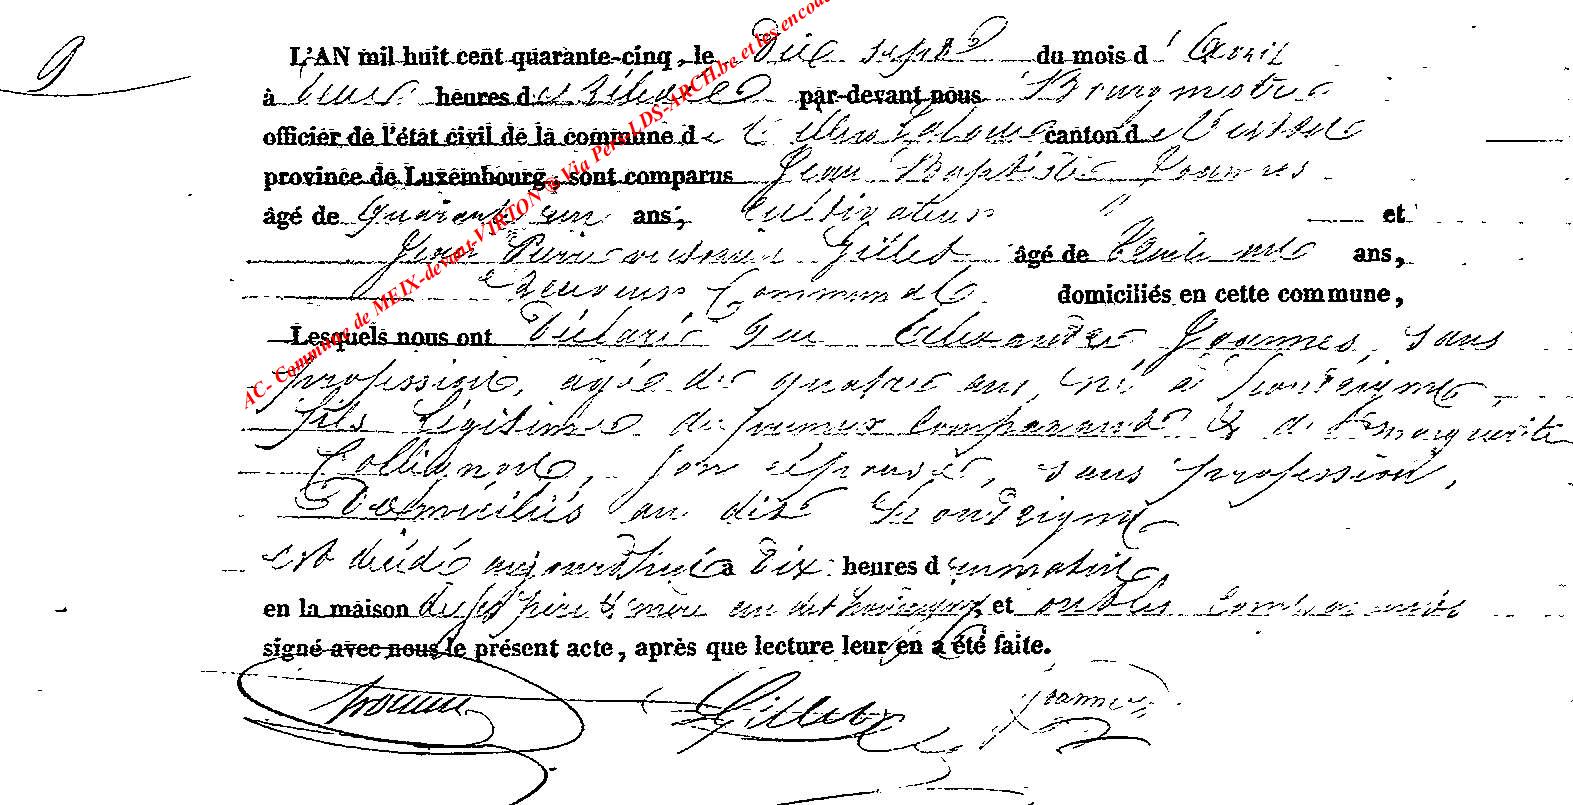 9
L'AN mil huit cent quarante-cinq, le Dix sept du mois d'Avril
à heures de par-devant nous Bourgmestre
officier de l'état civil de la commune de Villers Laloue canton de Virton
province de Luxembourg, sont comparus Jean Baptiste Joannes
âgé de quarante un ans, cultivateur " et
Jean Pierre Gillet âgé de trente neuf ans,
Receveur Communal domiciliés en cette commune,
Lesquels nous ont Déclaré que Alexandre Joannes, sans
profession, âgé de quatre ans, né à houdrigny,
fils légitime du premier comparant & de Marguerite
Collignon, son épouse, sans profession,
Domiciliés au dit houdrigny
est décédé aujourd'hui à Dix heures du matin
en la maison de ses père & mère au dit houdrigny, et ont les comparants
signé avec nous le présent acte, après que lecture leur en a été faite.
Gillet Joannes
AC- Commune de MEIX-devant-VIRTON Via Pers LDS-ARCH.be et les encod